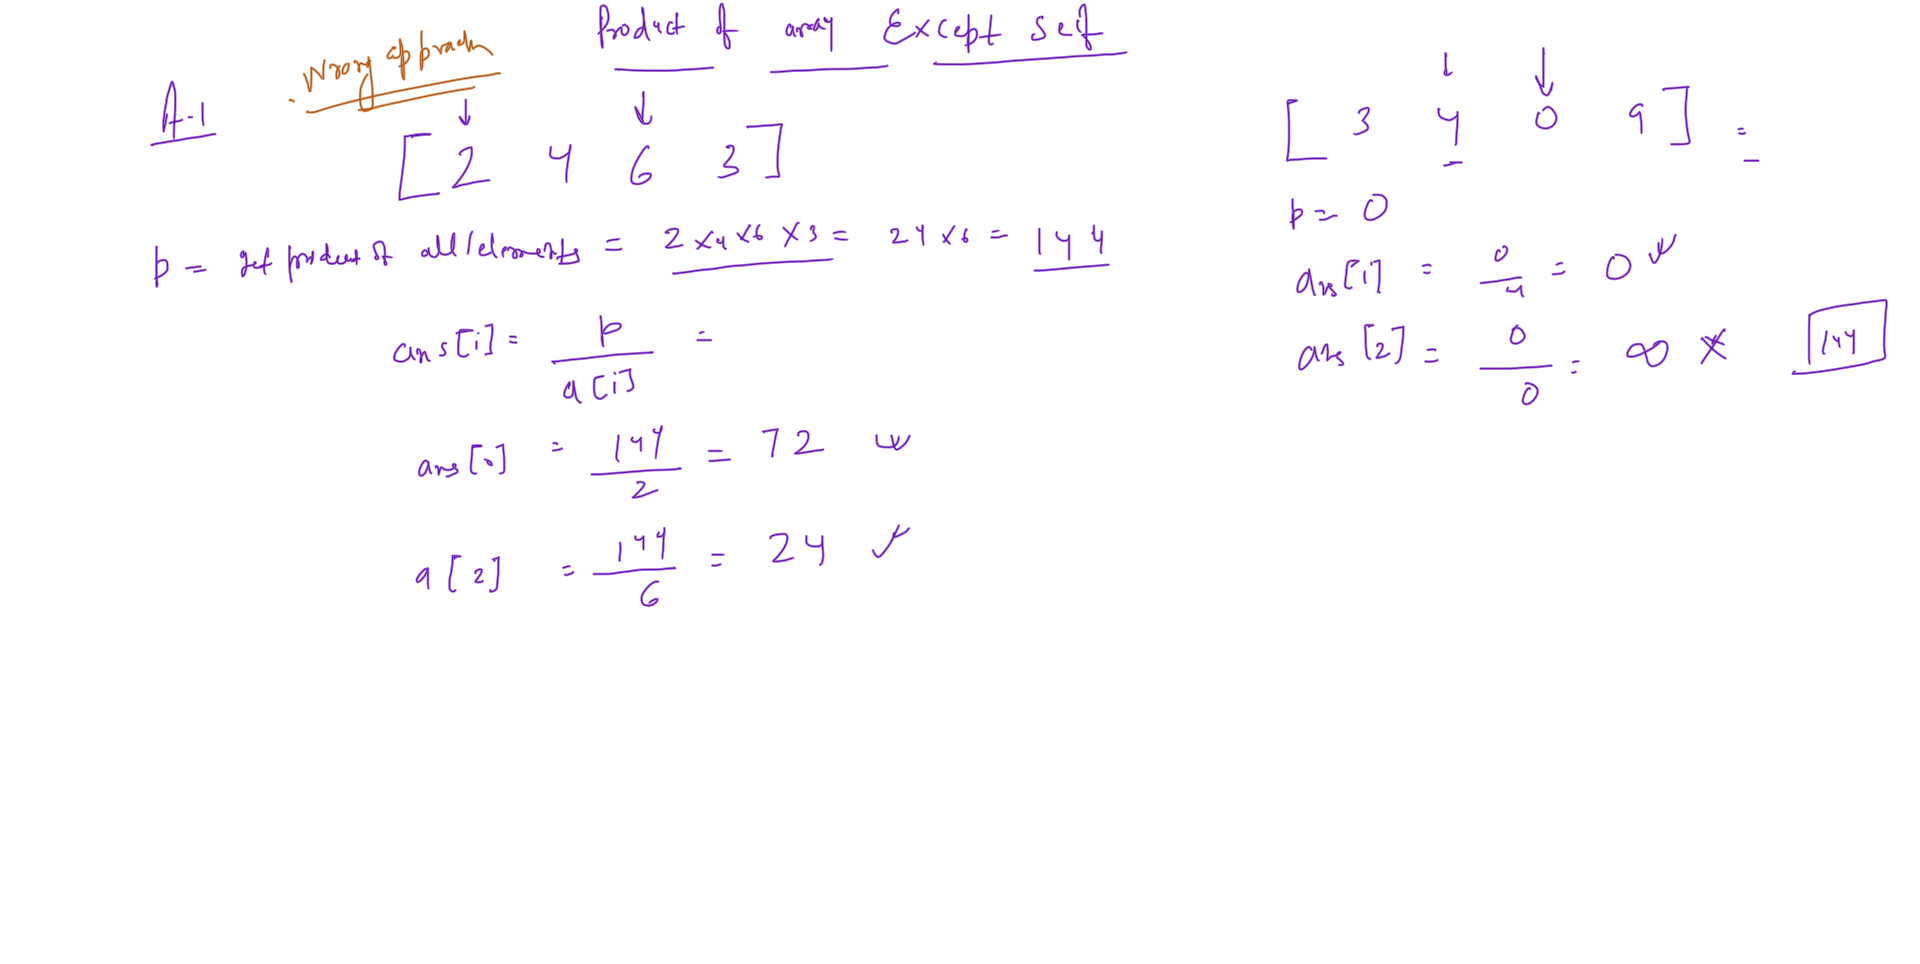 Product of array Except self
Wrong approach
A-1
[ 2 4 6 3 ]
p = get product of all elements = 2 x 4 x 6 x 3 = 24 x 6 = 144
ans[i] = p / a[i] =
ans[0] = 144 / 2 = 72
a[2] = 144 / 6 = 24
[ 3 4 0 9 ] =
p = 0
ans[1] = 0 / 4 = 0
ans[2] = 0 / 0 = ∞ ×
144